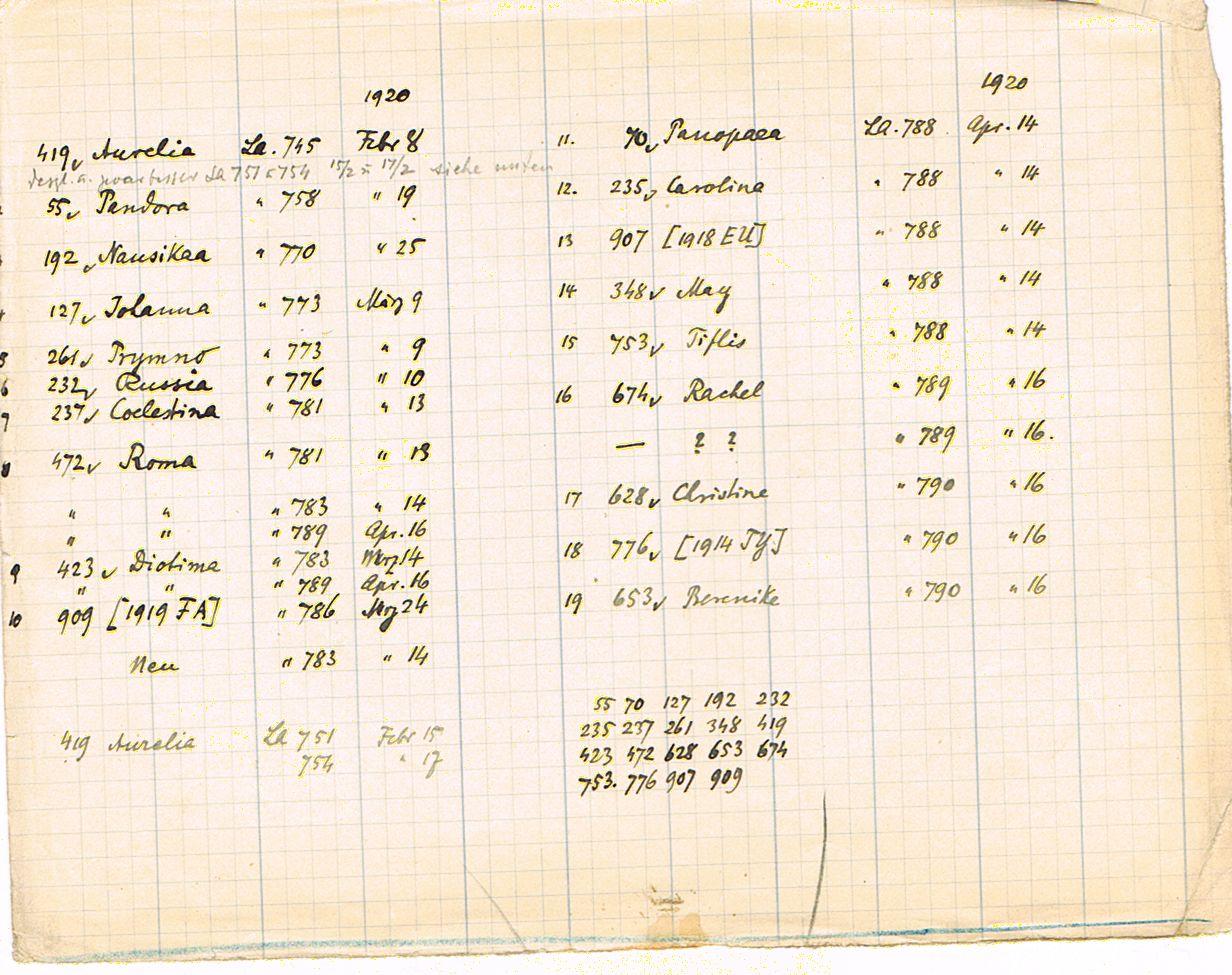 1920
419 Aurelia La. 745 Febr 8
La 751 u 754 15/2 u 17/2 siehe unten
55 Pandora " 758 " 19
192 Nausikaa " 770 " 25
127 Iohanna " 773 März 9
5 261 Prymno " 773 " 9
6 232 Russia " 776 " 10
7 237 Coelestina " 781 " 13
8 472 Roma " 781 " 13
" " " 783 " 14
" " " 789 Apr. 16
9 423 Diotima " 783 Mrz 14
" " " 789 Apr. 16
10 909 [1919 FA] " 786 Mrz 24
Neu " 783 " 14
419 Aurelia La 751 Febr 15
754 " 17
1920
11. 70 Panopaea La. 788 Apr. 14
12. 235 Carolina " 788 " 14
13 907 [1918 EU] " 788 " 14
14 348 May " 788 " 14
15 753 Tiflis " 788 " 14
16 674 Rachel " 789 " 16
— ? ? " 789 " 16.
17 628 Christine " 790 " 16
18 776 [1914 TY] " 790 " 16
19 653 Berenike " 790 " 16
55 70 127 192 232
235 237 261 348 419
423 472 628 653 674
753. 776 907 909